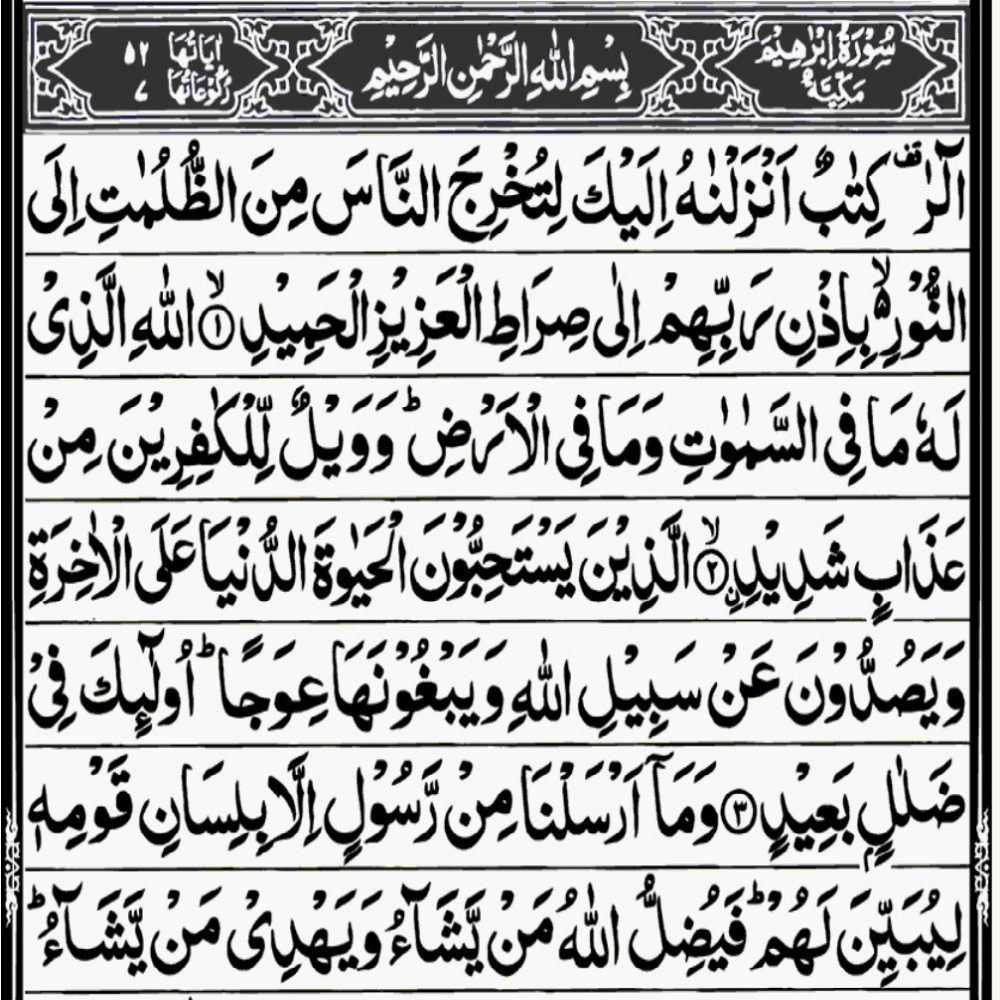 سُوْرَةُ اِبْرٰهِيْمَ مَكِّيَّةٌ
بِسْمِ اللّٰهِ الرَّحْمٰنِ الرَّحِيْمِ
اٰيَاتُهَا ٥٢
رُكُوْعَاتُهَا ٧
الٓرٰ ۫ قف كِتٰبٌ اَنْزَلْنٰهُ اِلَيْكَ لِتُخْرِجَ النَّاسَ مِنَ الظُّلُمٰتِ اِلَى
النُّوْرِ ۙ۬ بِاِذْنِ رَبِّهِمْ اِلٰى صِرَاطِ الْعَزِيْزِ الْحَمِيْدِ ۙ﴿١﴾ اللّٰهِ الَّذِىْ
لَهٗ مَا فِى السَّمٰوٰتِ وَمَا فِى الْاَرْضِ ؕ وَوَيْلٌ لِّلْكٰفِرِيْنَ مِنْ
عَذَابٍ شَدِيْدِ ۙ﴿٢﴾ ۨالَّذِيْنَ يَسْتَحِبُّوْنَ الْحَيٰوةَ الدُّنْيَا عَلَى الْاٰخِرَةِ
وَيَصُدُّوْنَ عَنْ سَبِيْلِ اللّٰهِ وَيَبْغُوْنَهَا عِوَجًا ؕ اُولٰٓئِكَ فِىْ
ضَلٰلٍۭ بَعِيْدٍ ﴿٣﴾ وَمَاۤ اَرْسَلْنَا مِنْ رَّسُوْلٍ اِلَّا بِلِسَانِ قَوْمِهٖ
لِيُبَيِّنَ لَهُمْ ؕ فَيُضِلُّ اللّٰهُ مَنْ يَّشَآءُ وَيَهْدِىْ مَنْ يَّشَآءُ ؕ